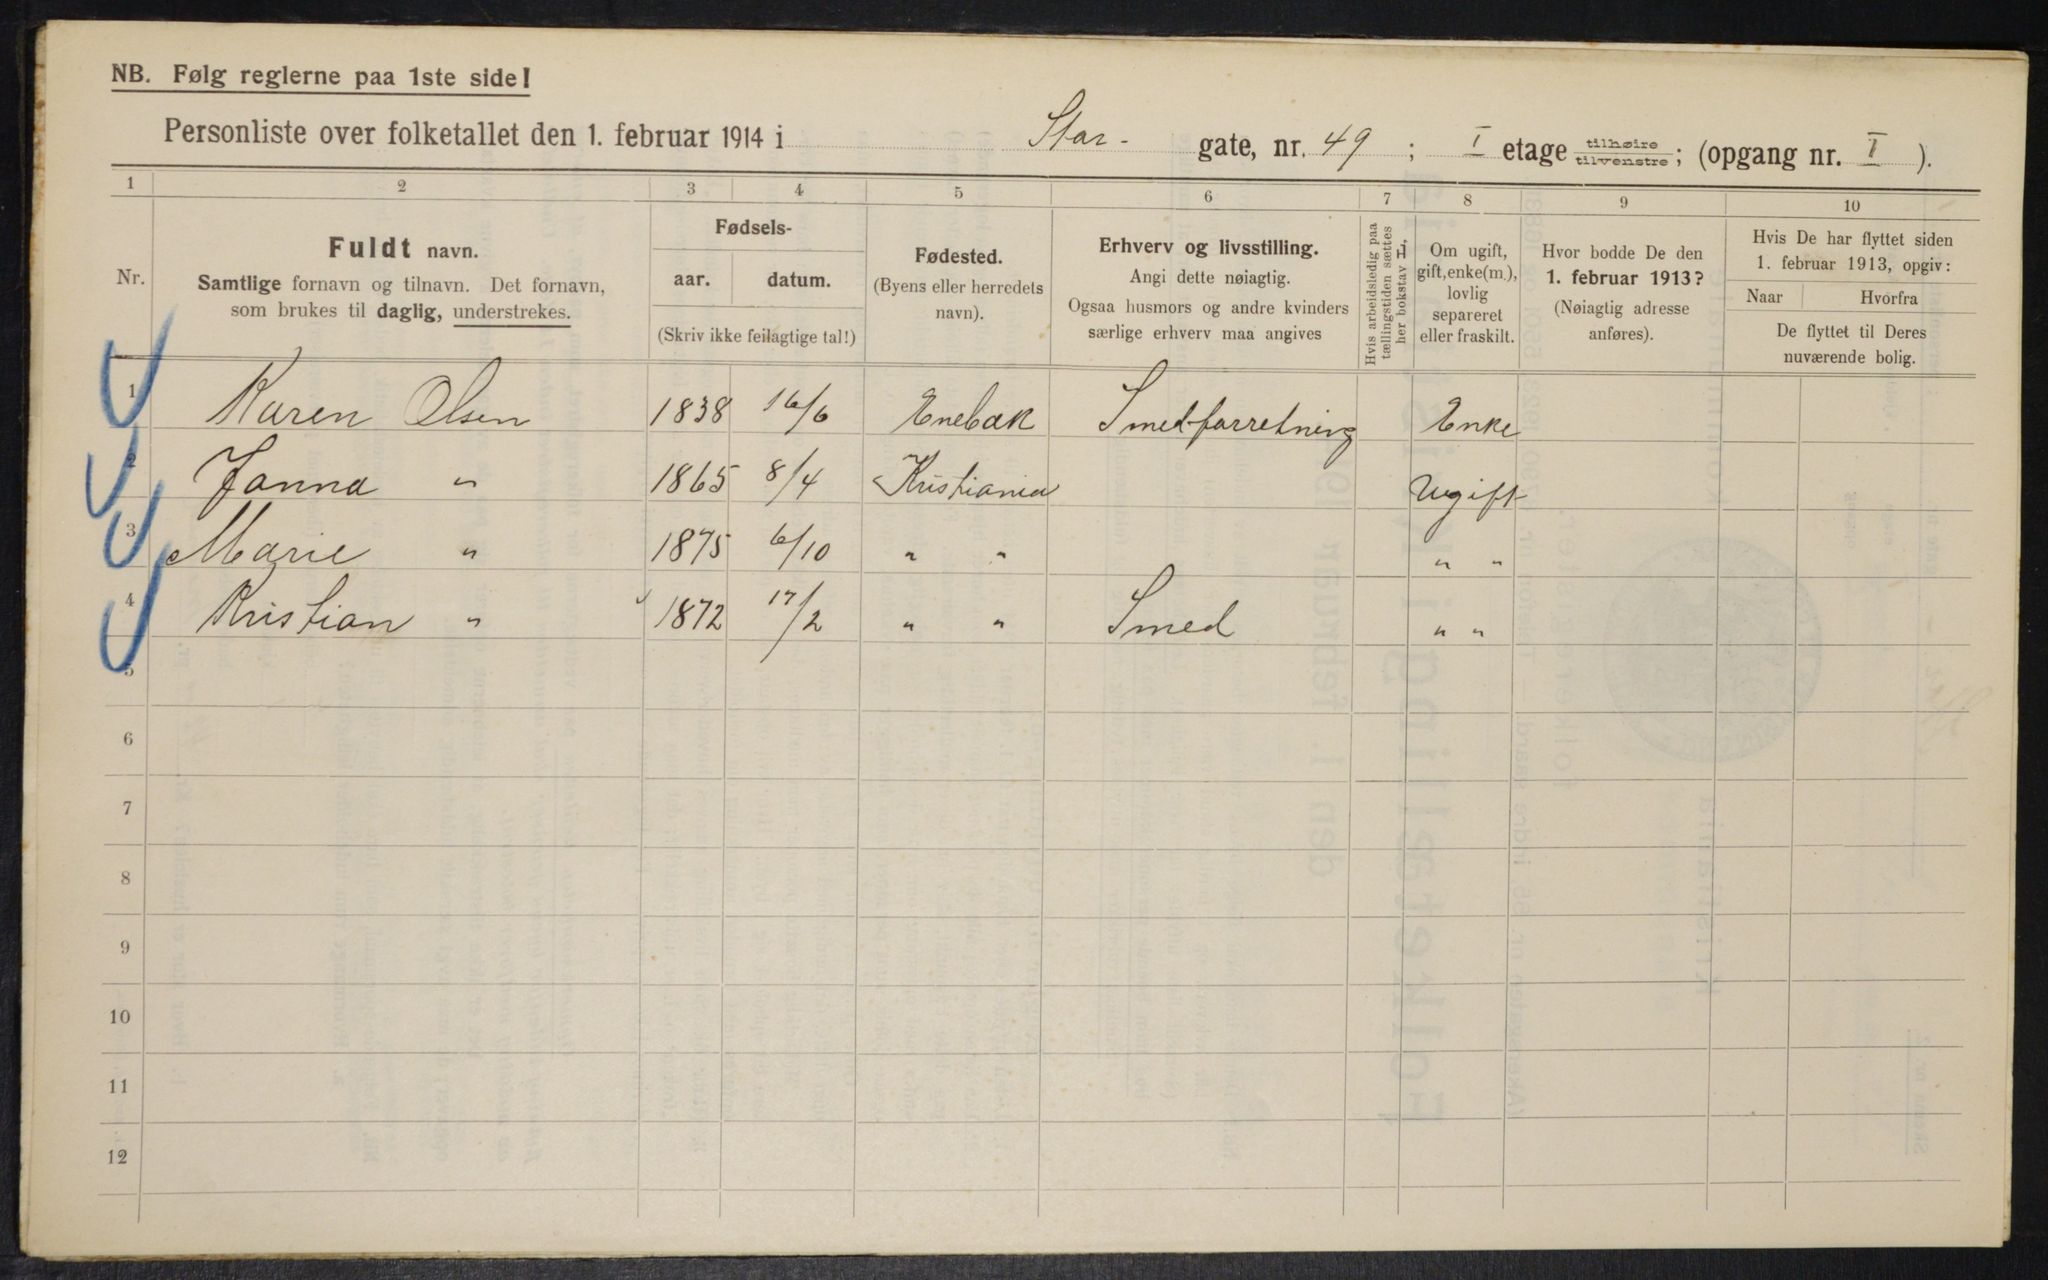 NB. Følg reglerne paa 1ste side!
Personliste over folketallet den 1. februar 1914 i Stor- gate, nr. 49 ; I etage tilhøire tilvenstre ; (opgang nr. I ).
1 2 3 4 5 6 7 8 9 10
Nr.
Fuldt navn.
Samtlige fornavn og tilnavn. Det fornavn,
som brukes til daglig, understrekes.
Fødsels-
aar. datum.
(Skriv ikke feilagtige tal!)
Fødested.
(Byens eller herredets
navn).
Erhverv og livsstilling.
Angi dette nøiagtig.
Ogsaa husmors og andre kvinders
særlige erhverv maa angives
Hvis arbeidsledig paa
tællingstiden sættes
her bokstav L.
Om ugift,
gift, enke(m.),
lovlig
separeret
eller fraskilt.
Hvor bodde De den
1. februar 1913?
(Nøiagtig adresse
anføres).
Hvis De har flyttet siden
1. februar 1913, opgiv:
Naar Hvorfra
De flyttet til Deres
nuværende bolig.
1 Karen Olsen 1838 16/6 Enebak Smedforretning Enke
2 Janna " 1865 8/4 Kristiania Ugift
3 Marie " 1875 6/10 " " " "
4 Kristian " 1872 17/2 " " Smed " "
5
6
7
8
9
10
11
12